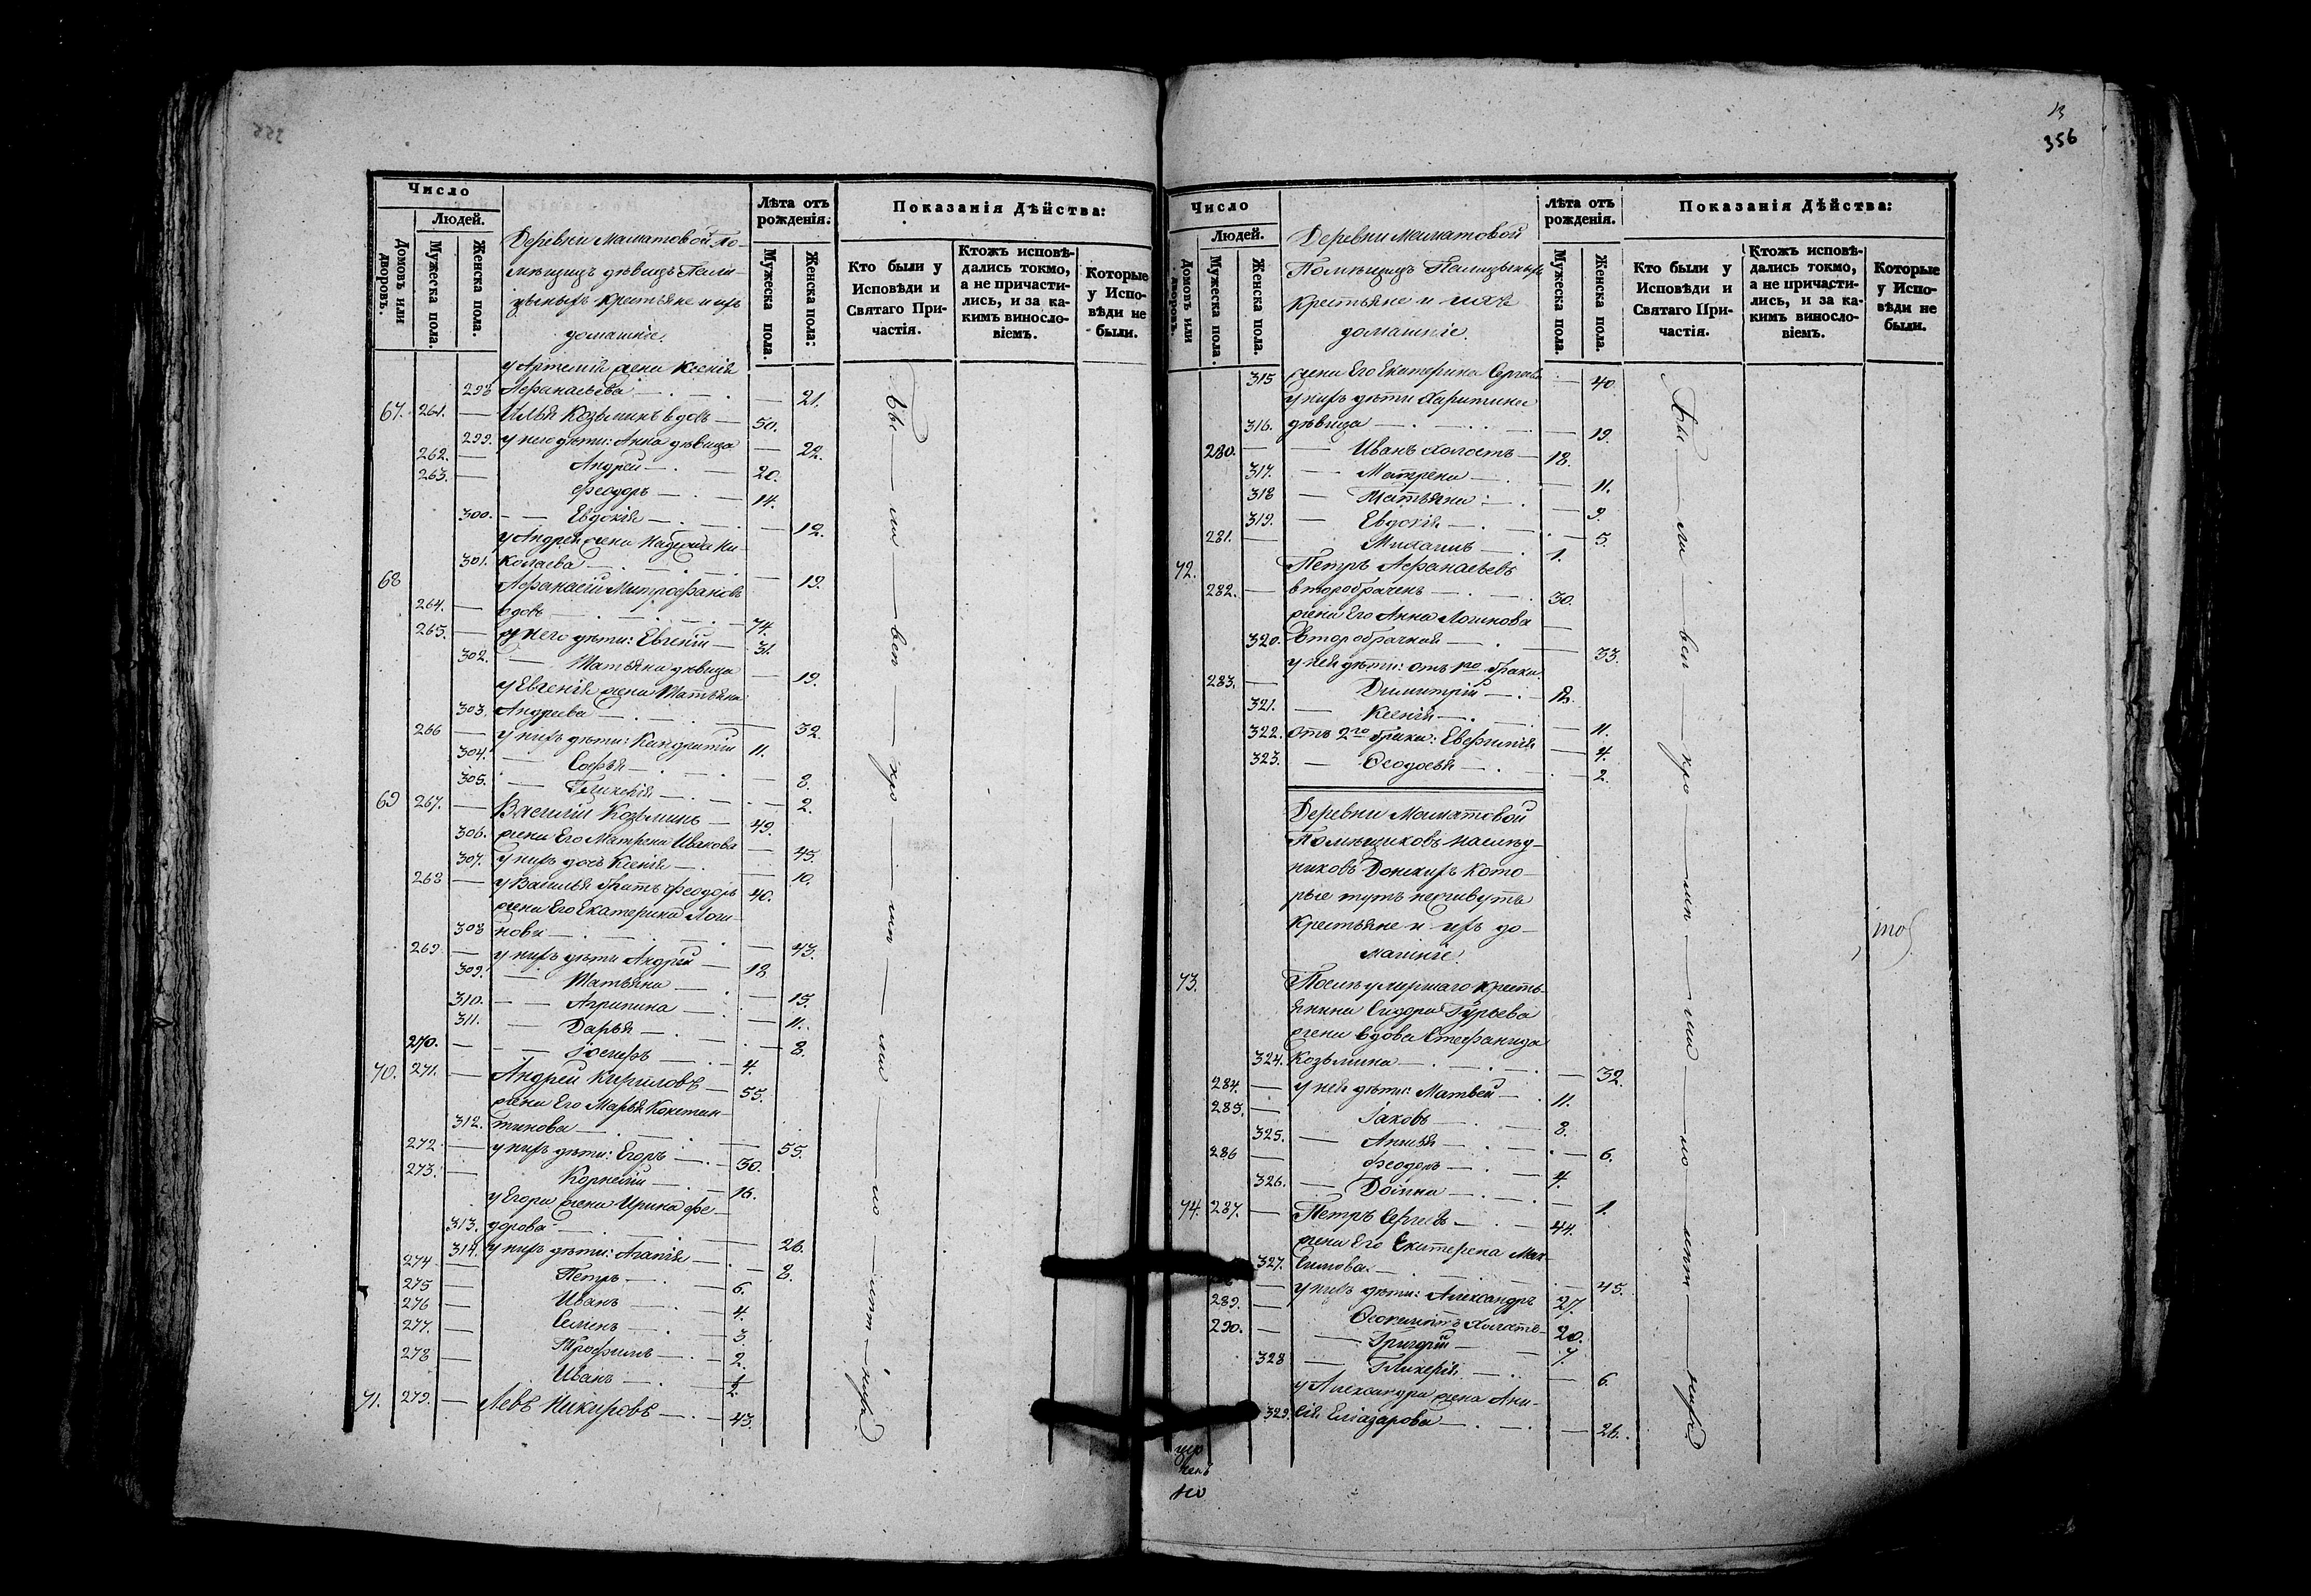 355
13
356
Число
Людей.
Домовъ или дворовъ.
Мужеска пола.
Женска пола.
Деревни Маматовой по-
мѣщицъ дѣвицъ
крестьяне и ихъ
домашніе.
Лѣта отъ
рожденія.
Мужеска пола.
Женска пола.
Показанія Дѣйства:
Кто были у
Исповѣди и
Святаго При-
частія.
Ктожъ исповѣ-
дались токмо,
а не причасти-
лись, и за ка-
кимъ винослo-
віемъ.
Которые
у Испо-
вѣди не
были.
у Артемія жена Ксенія
298 Аѳанасьева — 21.
67. 261. — Илья Козьминъ вдовъ — 50.
299. у него дѣти: Анна дѣвица — 22.
262. — Андрей — 20.
263. — Феодоръ — 14.
300. — Евдокія — 12.
у Андрея жена Надежда Ни-
301. колаева — 19.
68 Афанасій Митрофановъ
264. — вдовъ — 74.
265. — у него дѣти: Евгеній — 31.
302. — Татьяна дѣвица — 19.
у Евгенія жена Татьяна
303. Андреева — 32.
266 — у нихъ дѣти: Кандратій 11.
304. — Софья — 8.
305. — Гликерія — 2.
69 267. — Василій Козьминъ — 49.
306. жена Его Матрена Иванова — 45.
307. у нихъ дочь Ксенія — 10.
268 — у Василья братъ Феодоръ 40.
жена Его Екатерина Логи-
308 нова — 43.
269 — у нихъ дѣти Андрей — 18
309. — Татьяна — 15.
310. — Агрипина — 11.
311. — Дарья — 8.
270. — Іосифъ — 4.
70. 271. — Андрей Кириловъ — 55.
жена Его Марья Констан-
312. тинова — 55.
272 — у нихъ дѣти: Егоръ — 30.
273. — Корнейли — 16.
у Егора жена Ирина Фе-
313. дорова — 26.
314. у нихъ дѣти: Агапія — 8.
274 — Петръ — 6.
275 — Иванъ — 4.
276 — Семенъ — 3.
277. — Трофимъ — 2.
278 — Иванъ — 1/2.
71. 279. — Левъ Никировъ — 43.
Число
Людей.
Домовъ или дворовъ.
Мужеска пола.
Женска пола.
Деревни Маматовой
Помѣщицъ
Крестьяне и ихъ
домашніе.
Лѣта отъ
рожденія.
Мужеска пола.
Женска пола.
Показанія Дѣйства:
Кто были у
Исповѣди и
Святаго При-
частія.
Ктожъ исповѣ-
дались токмо,
а не причасти-
лись, и за ка-
кимъ винослo-
віемъ.
Которые
у Испо-
вѣди не
были.
315 жена Его Екатерина Сергѣева — 40.
у нихъ дѣти Харитина
316. дѣвица — 19.
280. — Иванъ холостъ — 18.
317. — Матрена — 11.
318 — Татьяна — 9.
319. — Евдокія — 5.
281. — Михаилъ — 1.
72. Петръ Афанасьевъ
282. — второбраченъ — 30.
жена Его Анна Логинова
320. второбрачная — 33.
у нея дѣти: отъ 1го брака
283. — Димитрій — 12.
321. — Ксенія — 11.
322. отъ 2го брака: Евфимія — 4.
323. — Ѳеодосья — 2.
Деревни Маматовой
Помѣщиковъ наслѣд-
никовъ Донскихъ кото-
рые тутъ неживутъ
Крестьяне и ихъ до-
машніе.
73. Послѣ умершаго кресть-
янина Сидора Гурьева
жена вдова Стефанида
324. Козьмина — 32.
284. — у нея дѣти: Матвей — 11.
285. — Іаковъ — 8.
325. — Анисья — 6.
286 — Феодоръ — 4.
326. — Домна — 1.
74. 287. — Петръ Сергѣевъ — 44.
жена Его Екатерена Мак-
327. симова — 45.
— у нихъ дѣти: Александръ 27.
289. — холостъ 20.
290. — Григорій — 7.
328 — Гликерія — 6.
у Александра жена Ани-
329. сія Елiазарова — 26.